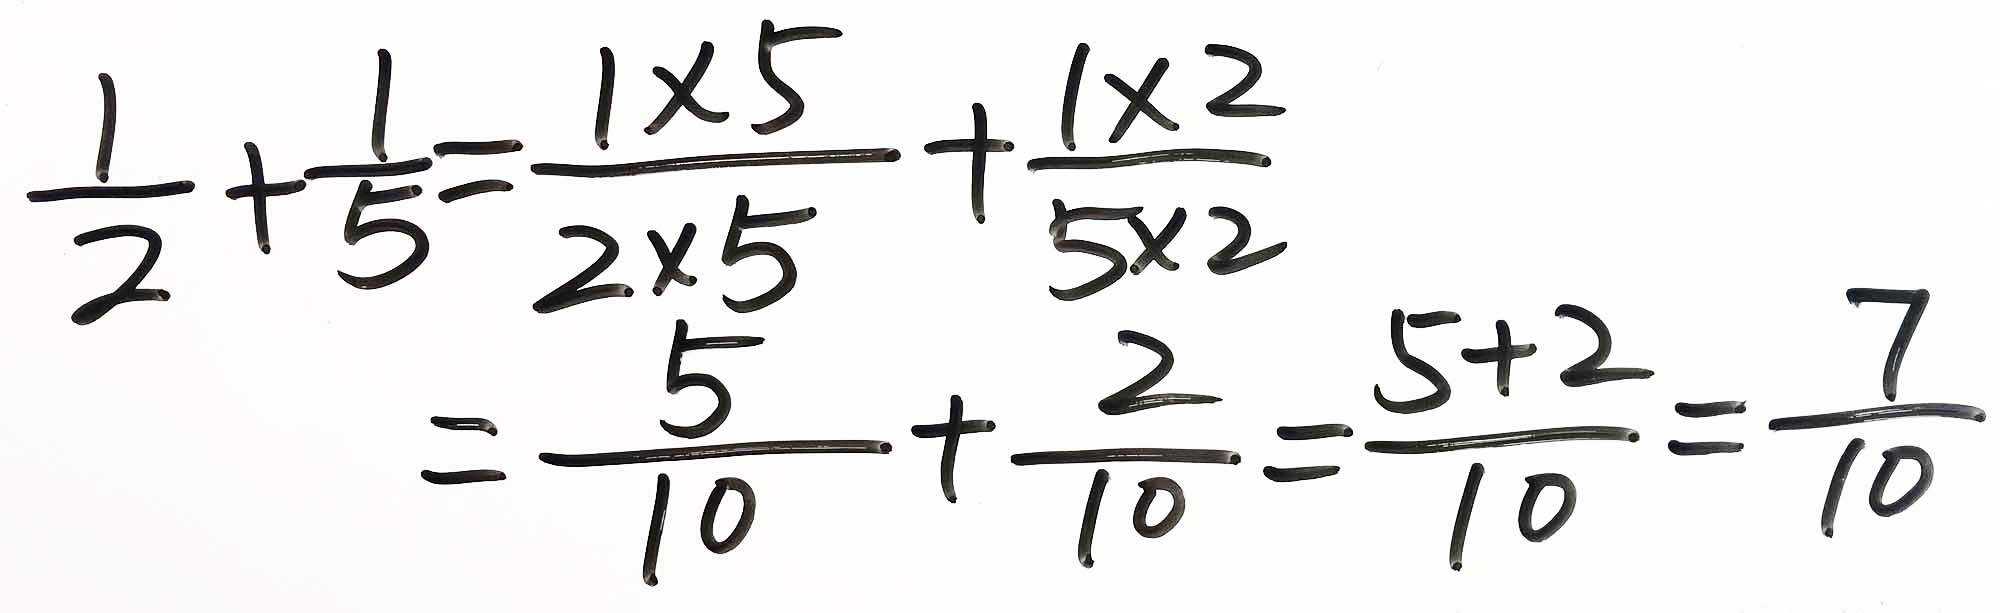 1/2 + 1/5 = (1×5)/(2×5) + (1×2)/(5×2)
= 5/10 + 2/10 = (5+2)/10 = 7/10